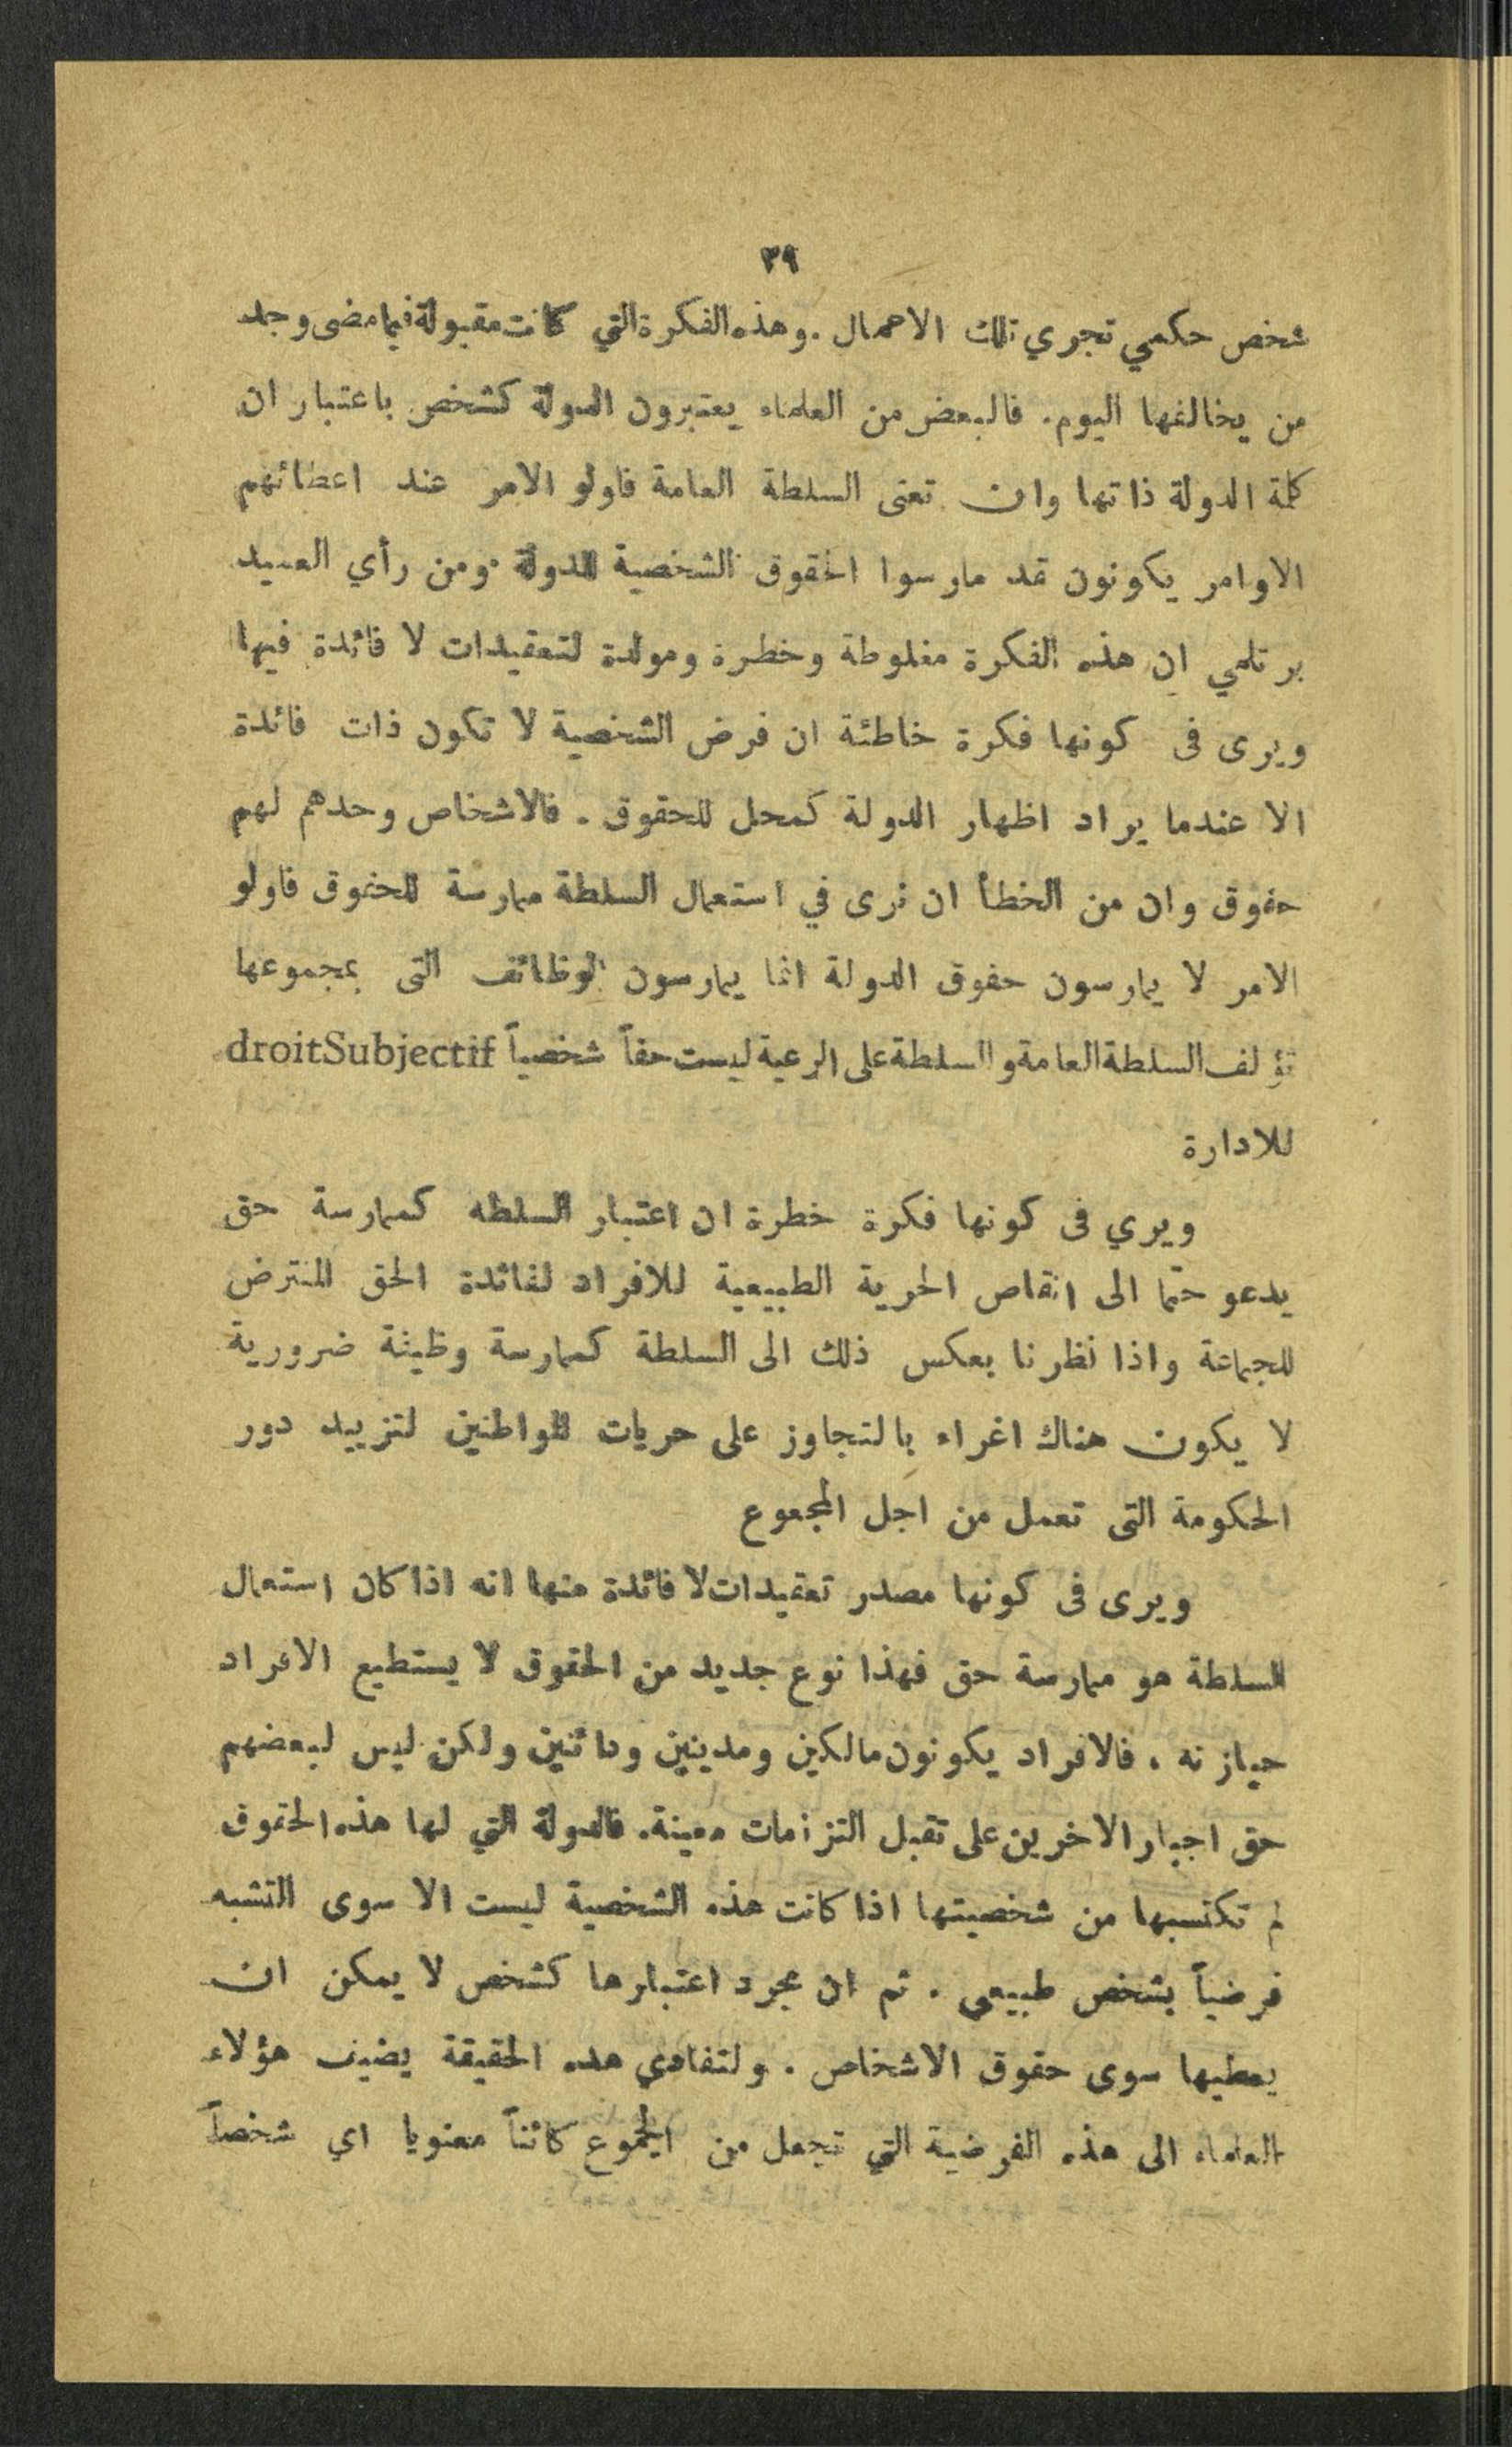 ٣٩
شخص حكمي تجري تلك الاعمال . وهذه الفكرة التي كانت مقبولة فيما مضى وجد
من يخالفها اليوم . فالبعض من العلماء يعتبرون الدولة كشخص باعتبار ان
كلمة الدولة ذاتها وان تعنى السلطة العامة فاولو الامر عند اعطائهم
الاوامر يكونون قد مارسوا الحقوق الشخصية للدولة . ومن رأي العميد
برتلمي ان هذه الفكرة مغلوطة وخطرة ومولدة لتعقيدات لا فائدة فيها
ويرى فى كونها فكرة خاطئة ان فرض الشخصية لا تكون ذات فائدة
الا عندما يراد اظهار الدولة كمحل للحقوق . فالاشخاص وحدهم لهم
حقوق وان من الخطأ ان نرى في استعمال السلطة ممارسة للحقوق فاولو
الامر لا يمارسون حقوق الدولة انما يمارسون الوظائف التى بمجموعها
تؤلف السلطة العامة والسلطة على الرعية ليست حقاً شخصياً droitSubjectif
للادارة
ويري فى كونها فكرة خطرة ان اعتبار السلطه كممارسة حق
يدعو حتما الى انقاص الحرية الطبيعية للافراد لفائدة الحق المفترض
للجماعة واذا نظرنا بعكس ذلك الى السلطة كممارسة وظيفة ضرورية
لا يكون هناك اغراء بالتجاوز على حريات المواطنين لتزييد دور
الحكومة التى تعمل من اجل المجموع
ويرى فى كونها مصدر تعقيدات لا فائدة منها انه اذا كان استعمال
السلطة هو ممارسة حق فهذا نوع جديد من الحقوق لا يستطيع الافراد
حيازته . فالافراد يكونون مالكين ومدينين ودائنين ولكن ليس لبعضهم
حق اجبار الاخرين على تقبل التزامات معينة . فالدولة التي لها هذه الحقوق
لم تكتسبها من شخصيتها اذا كانت هذه الشخصية ليست الا سوى التشبه
فرضياً بشخص طبيعي . ثم ان مجرد اعتبارها كشخص لا يمكن ان
يعطيها سوى حقوق الاشخاص . ولتفادي هذه الحقيقة يضيف هؤلاء
العلماء الى هذه الفرضية التي تجعل من المجموع كائناً معنويا اي شخصاً